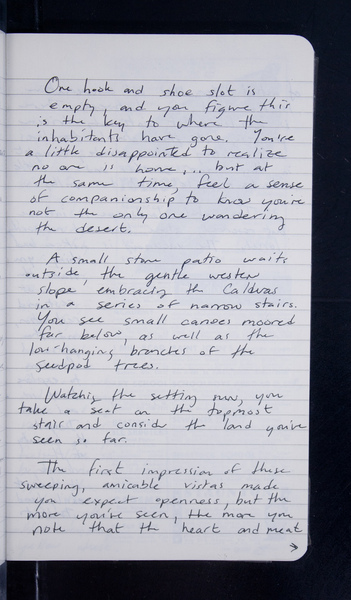 One hook and shoe slot is
empty, and you figure this
is the key to where the
inhabitants have gone. You're
a little disappointed to realize
no one is home,... but at
the same time, feel a sense
of companionship to know you're
not the only one wandering
the desert.
A small stone patio waits
outside, the gentle western
slope embracing the
in a series of narrow stairs.
You see small canoes moored
far below, as well as the
low-hanging branches of the
seedpod trees.
Watching the setting sun, you
take a seat on the topmost
stair and consider the land you've
seen so far.
The first impression of these
sweeping, amicable vistas made
you expect openness, but the
more you've seen, the more you
note that the heart and meat
→